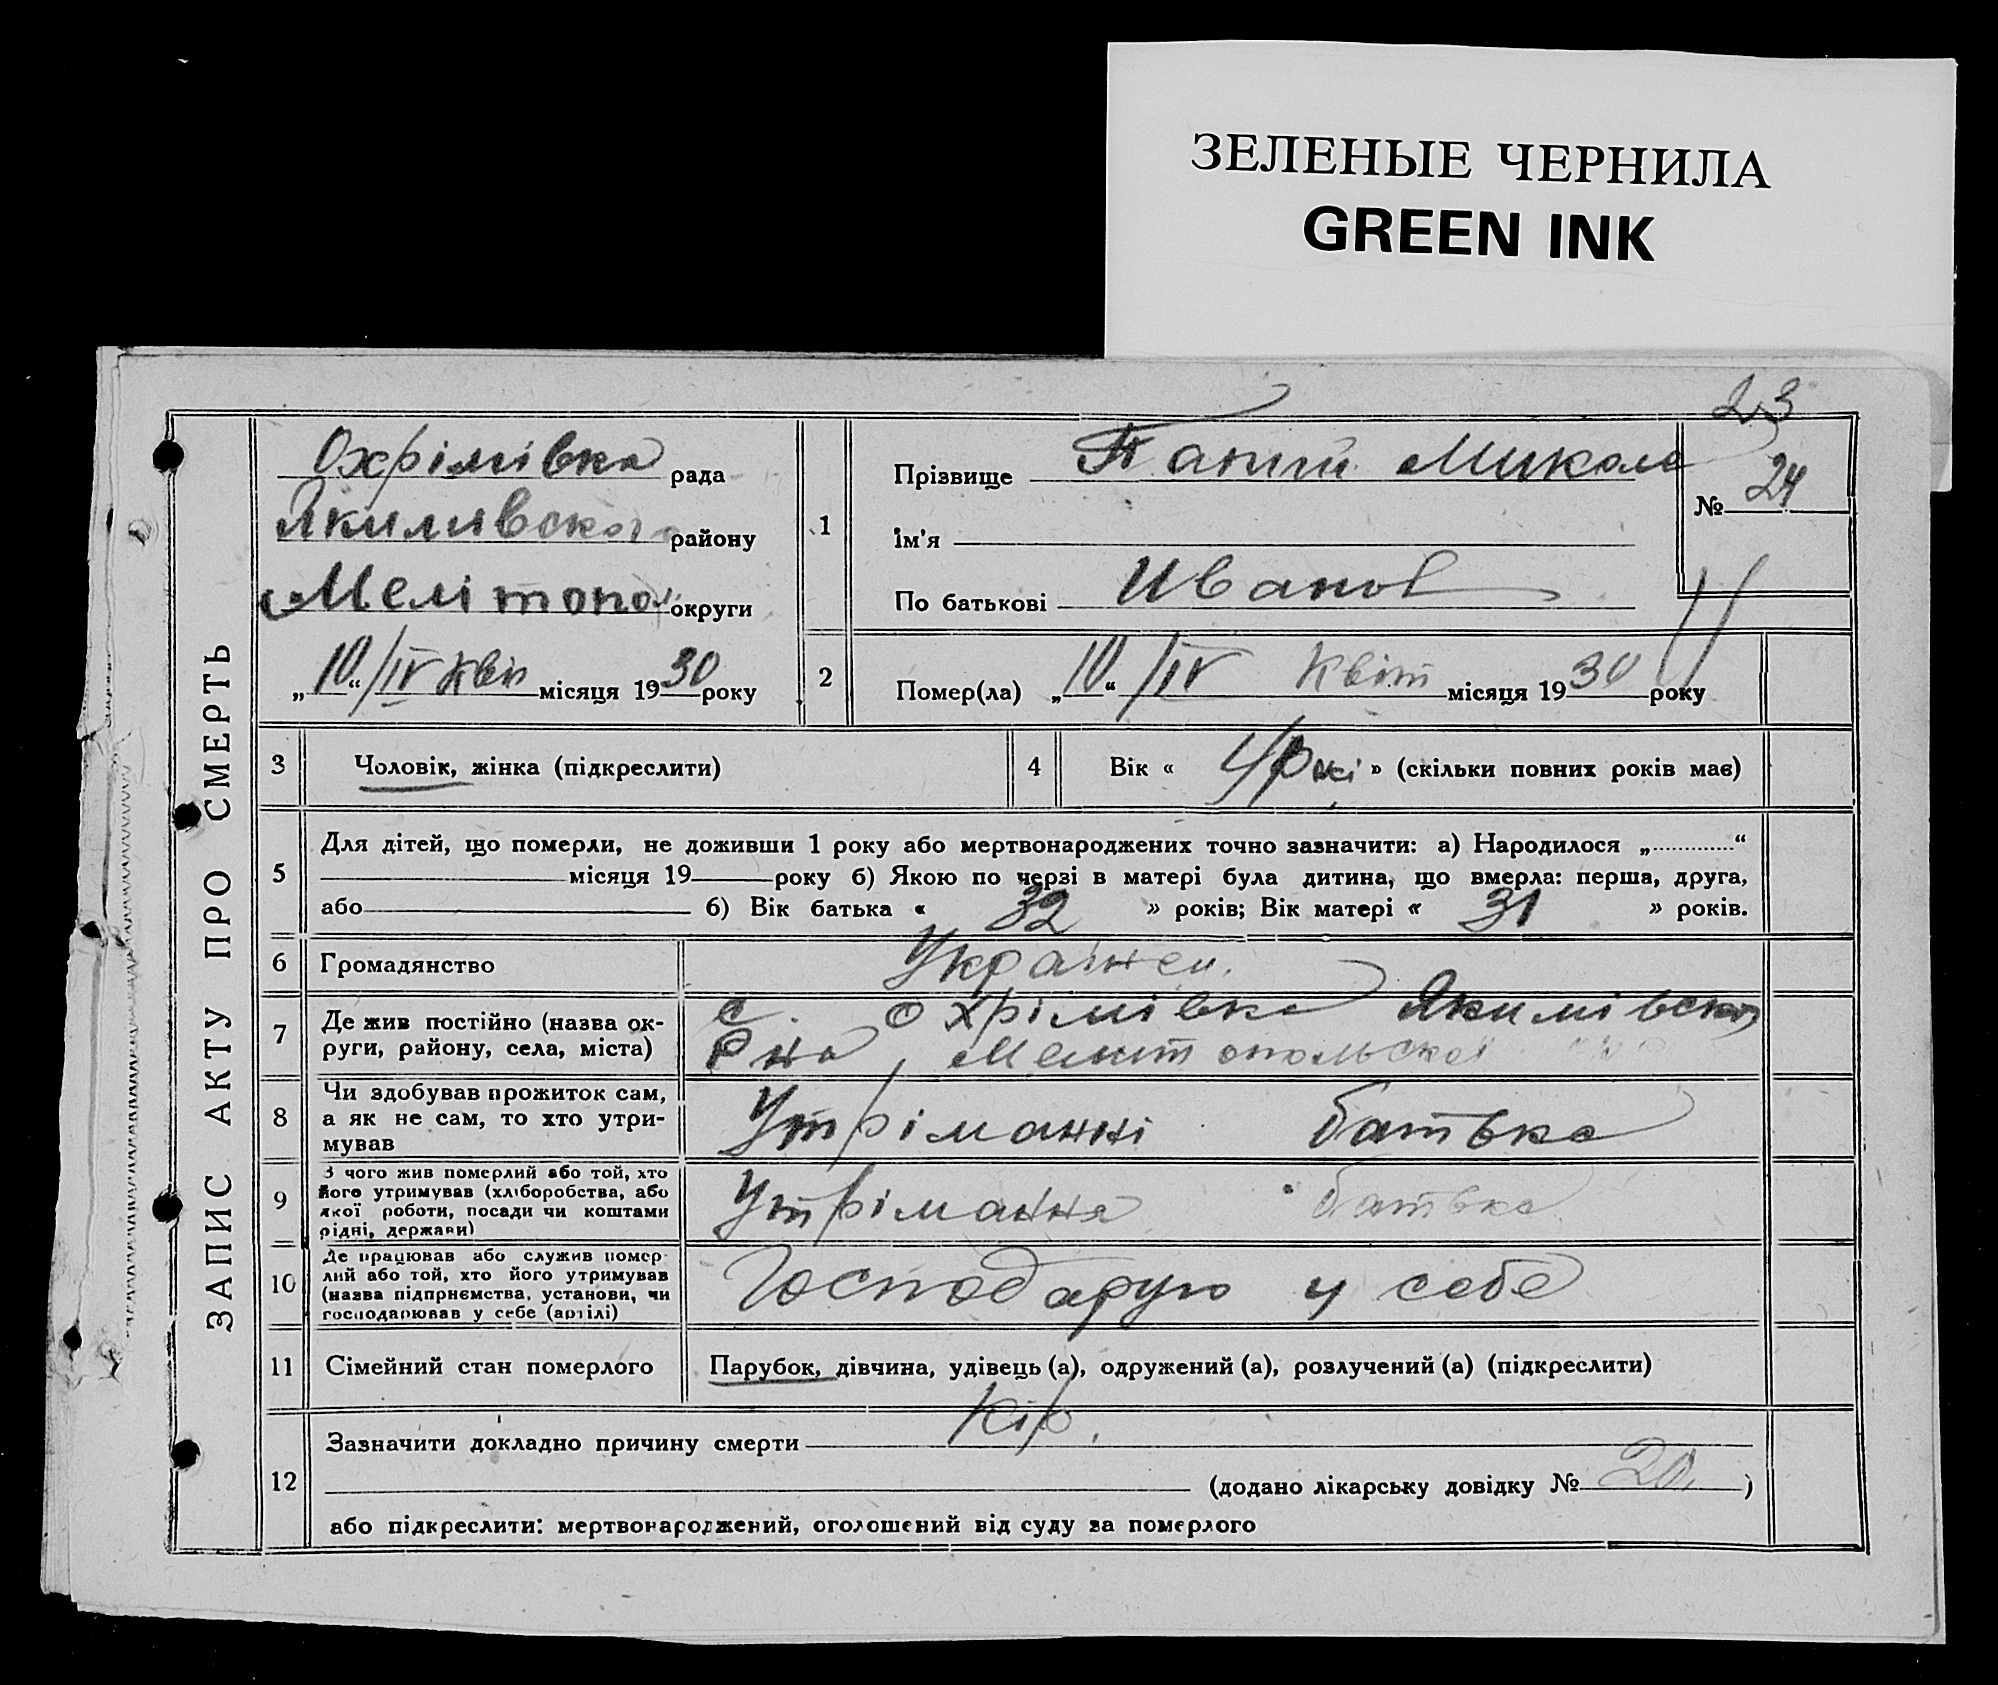 ЗЕЛЕНЫЕ ЧЕРНИЛА
GREEN INK
23
ЗАПИС АКТУ ПРО СМЕРТЬ
Охрімівка рада
Якимівского району
Меліτопол округи
„10“/IV квіт місяця 1930 року
1
Прізвище Микола
Ім'я
По батькові Иванов
№ 24
2
Помер(ла) „10“/IV Квіт місяця 1930 року
3
Чоловік, жінка (підкреслити)
4
Вік « 4 роки » (скільки повних років має)
5
Для дітей, що померли, не доживши 1 року або мертвонароджених точно зазначити: а) Народилося „............“
місяця 19 року б) Якою по черзі в матері була дитина, що вмерла: перша, друга,
або б) Вік батька « 32 » років; Вік матері « 31 » років.
6
Громадянство Українец.
7
Де жив постійно (назва ок-
руги, району, села, міста)
с. Охрімівка Якимівского
Р на, Мелитопольскої
8
Чи здобував прожиток сам,
а як не сам, то хто утри-
мував
Утріманні батька
9
З чого жив померлий або той, хто
його утримував (хліборобства, або
якої роботи, посади чи коштами
рідні, держави)
Утрімання батька
10
Де працював або служив помер-
лий або той, хто його утримував
(назва підприємства, установи, чи
господарював у себе (артілі)
Господарую у себе
11
Сімейний стан померлого
Парубок, дівчина, удівець (а), одружений (а), розлучений (а) (підкреслити)
12
Зазначити докладно причину смерти Кір.
(додано лікарську довідку № 20. )
або підкреслити: мертвонароджений, оголошений від суду за померлого